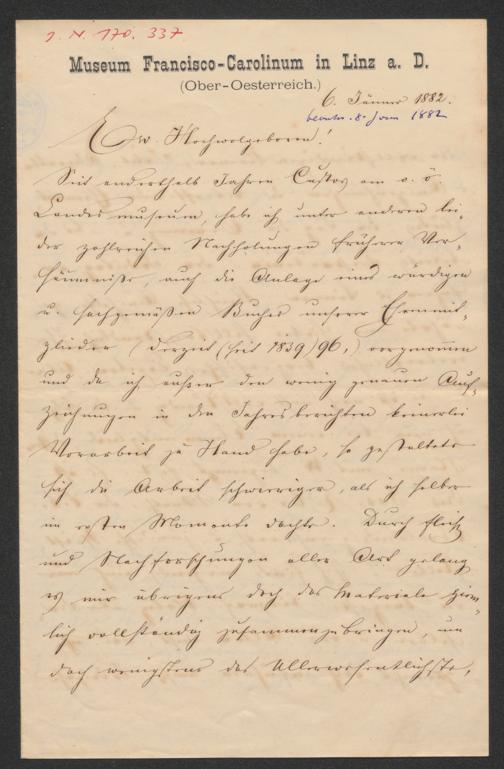 J. N. 170.337
Museum Francisco-Carolinum in Linz a. D.
(Ober-Oesterreich.)
6. Jänner 1882.
beantw. 8. Jann 1882
Ew. Hochwolgeboren!
Seit anderthalb Jahren Custos am o. ö
Landesmuseum, habe ich unter anderen lei-
der zahlreichen Nachholungen früherer Ver-
säumniße, auch die Anlage eines würdigen
u. sachgemäßen Buches unserer Ehrenmit-
glieder (derzeit (seit 1839) 96,) vorgenommen
und da ich außer den wenig genauen Auf-
zeichnungen in den Jahresberichten keinerlei
Vorarbeit zu Hand habe, so gestaltete
sich die Arbeit schwieriger, als ich selber
im ersten Momente dachte. Durch Fleiß
und Nachforschungen aller Art gelang
es mir übrigens doch das Materiale ziem-
lich vollständig zusammenzubringen, um
doch wenigstens das Allerwesentlichste,